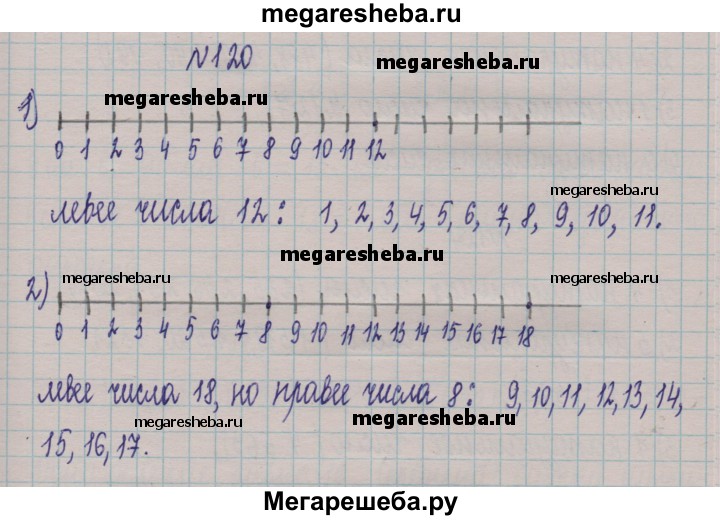 megaresheba.ru
№120
megaresheba.ru
megaresheba.ru
1)
0 1 2 3 4 5 6 7 8 9 10 11 12
megaresheba.ru
левее числа 12: 1, 2, 3, 4, 5, 6, 7, 8, 9, 10, 11.
megaresheba.ru
megaresheba.ru
megaresheba.ru
2)
0 1 2 3 4 5 6 7 8 9 10 11 12 13 14 15 16 17 18
левее числа 18, но правее числа 8: 9, 10, 11, 12, 13, 14,
megaresheba.ru
megaresheba.ru
15, 16, 17.
Мегарешеба.ру